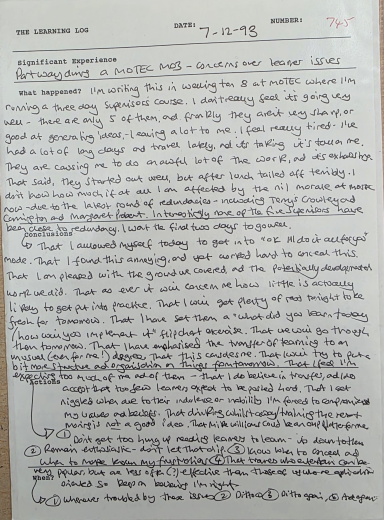 THE LEARNING LOG DATE: 7-12-93 NUMBER: 745
Significant Experience
Part way during a MOTEC MOB - concerns over learner issues
What happened? I'm writing this in wellington 8 at MOTEC where I'm
running a three day Supervisors course. I don't really feel it's going very
well - there are only 5 of them, and frankly they aren't very sharp, or
good at generating ideas, - leaving a lot to me. I feel really tired - I've
had a lot of long days and travel lately, and it's taking it's toll on me.
They are causing me to do an awful lot of the work, and it's exhausting.
That said, they started out well, but after lunch tailed off terribly. I
don't know how much if at all I am affected by the nil morale at MOTEC
now - due to the latest round of redundancies - including Terry Crowley and
and Margaret Interestingly none of the five Supervisors have
been close to redundancy. I want the first two days to go well.
Conclusions
That I allowed myself today to get into "OK I'll do it all for you"
mode. That I found this annoying, and yet worked hard to conceal this.
That I am pleased with the ground we covered, and the potentially developmental
work we did. That as ever it will concern me how little is actually
likely to get put into practice. That I will get plenty of rest tonight to be
fresh for tomorrow. That I have set them a "what did you learn today
/ how will you implement it" flipchart exercise. That we will go through
them tomorrow. That I have emphasised the transfer of learning to an
unusual (even for me!) degree, that this concerns me. That I will try to put a
bit more structure and organisation in things from tomorrow. That I feel I'm
expecting too much of me and of them - that I do believe in transfer, and also
accept that too few learners expect to be pushed hard. That I get
niggled when due to their indolence or inability I'm forced to compromise
my values and beliefs. That drinking whilst away training the next
morning is not a good idea. That Mike Williams could be an exploiter for me
Actions
① Don't get too hung up needing learners to learn - its down to them
② Remain enthusiastic - don't let that slip ③ Know when to conceal and
when to make known my frustrations ④ That trainers who entertain can be
very popular but are less often (?) effective than those of us more application
oriented so keep on believing I'm right.
When?
① whenever troubled by these issues ② Ditto ③ Ditto again, ④ And again.